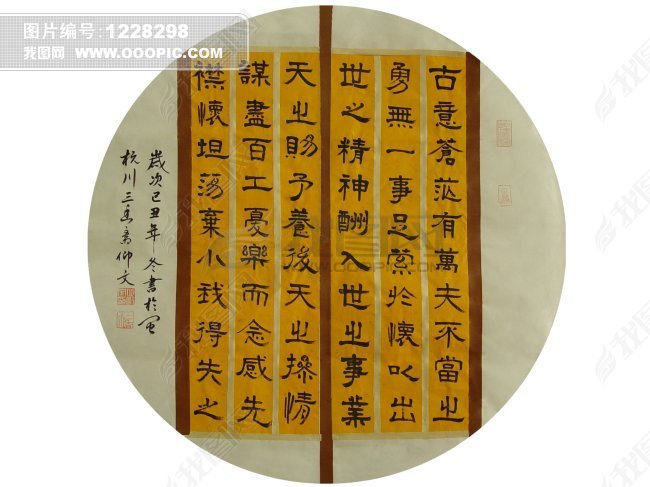 图片编号：1228298
我图网 WWW.OOOPIC.COM
古意蒼茫有萬夫不當之
勇無一事足縈於懷以出
世之精神酬入世之事業
天之賜予養後天之操情
謀盡百工憂樂而念感先
襟懷坦蕩棄小我得失之
歲次己丑年冬書於閩
杭川三齋仰文